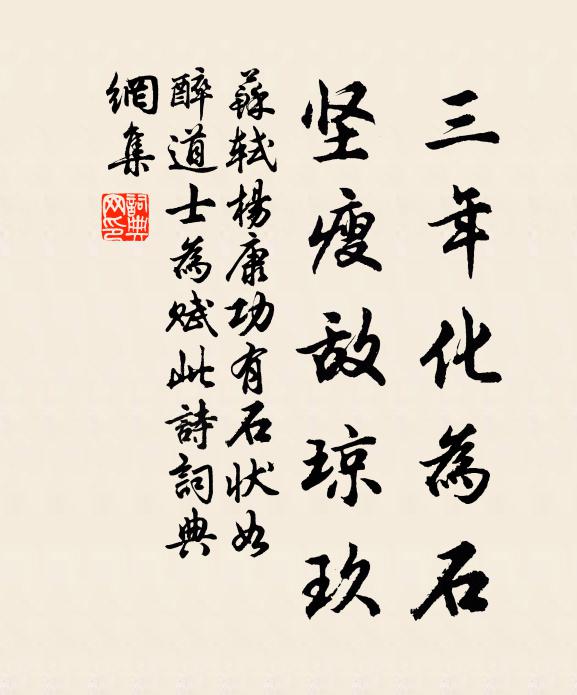 三年化為石
坚瘦敌琼玖
蘇軾楊康功有石状如
醉道士為赋此詩詞典
網集
詞典网印